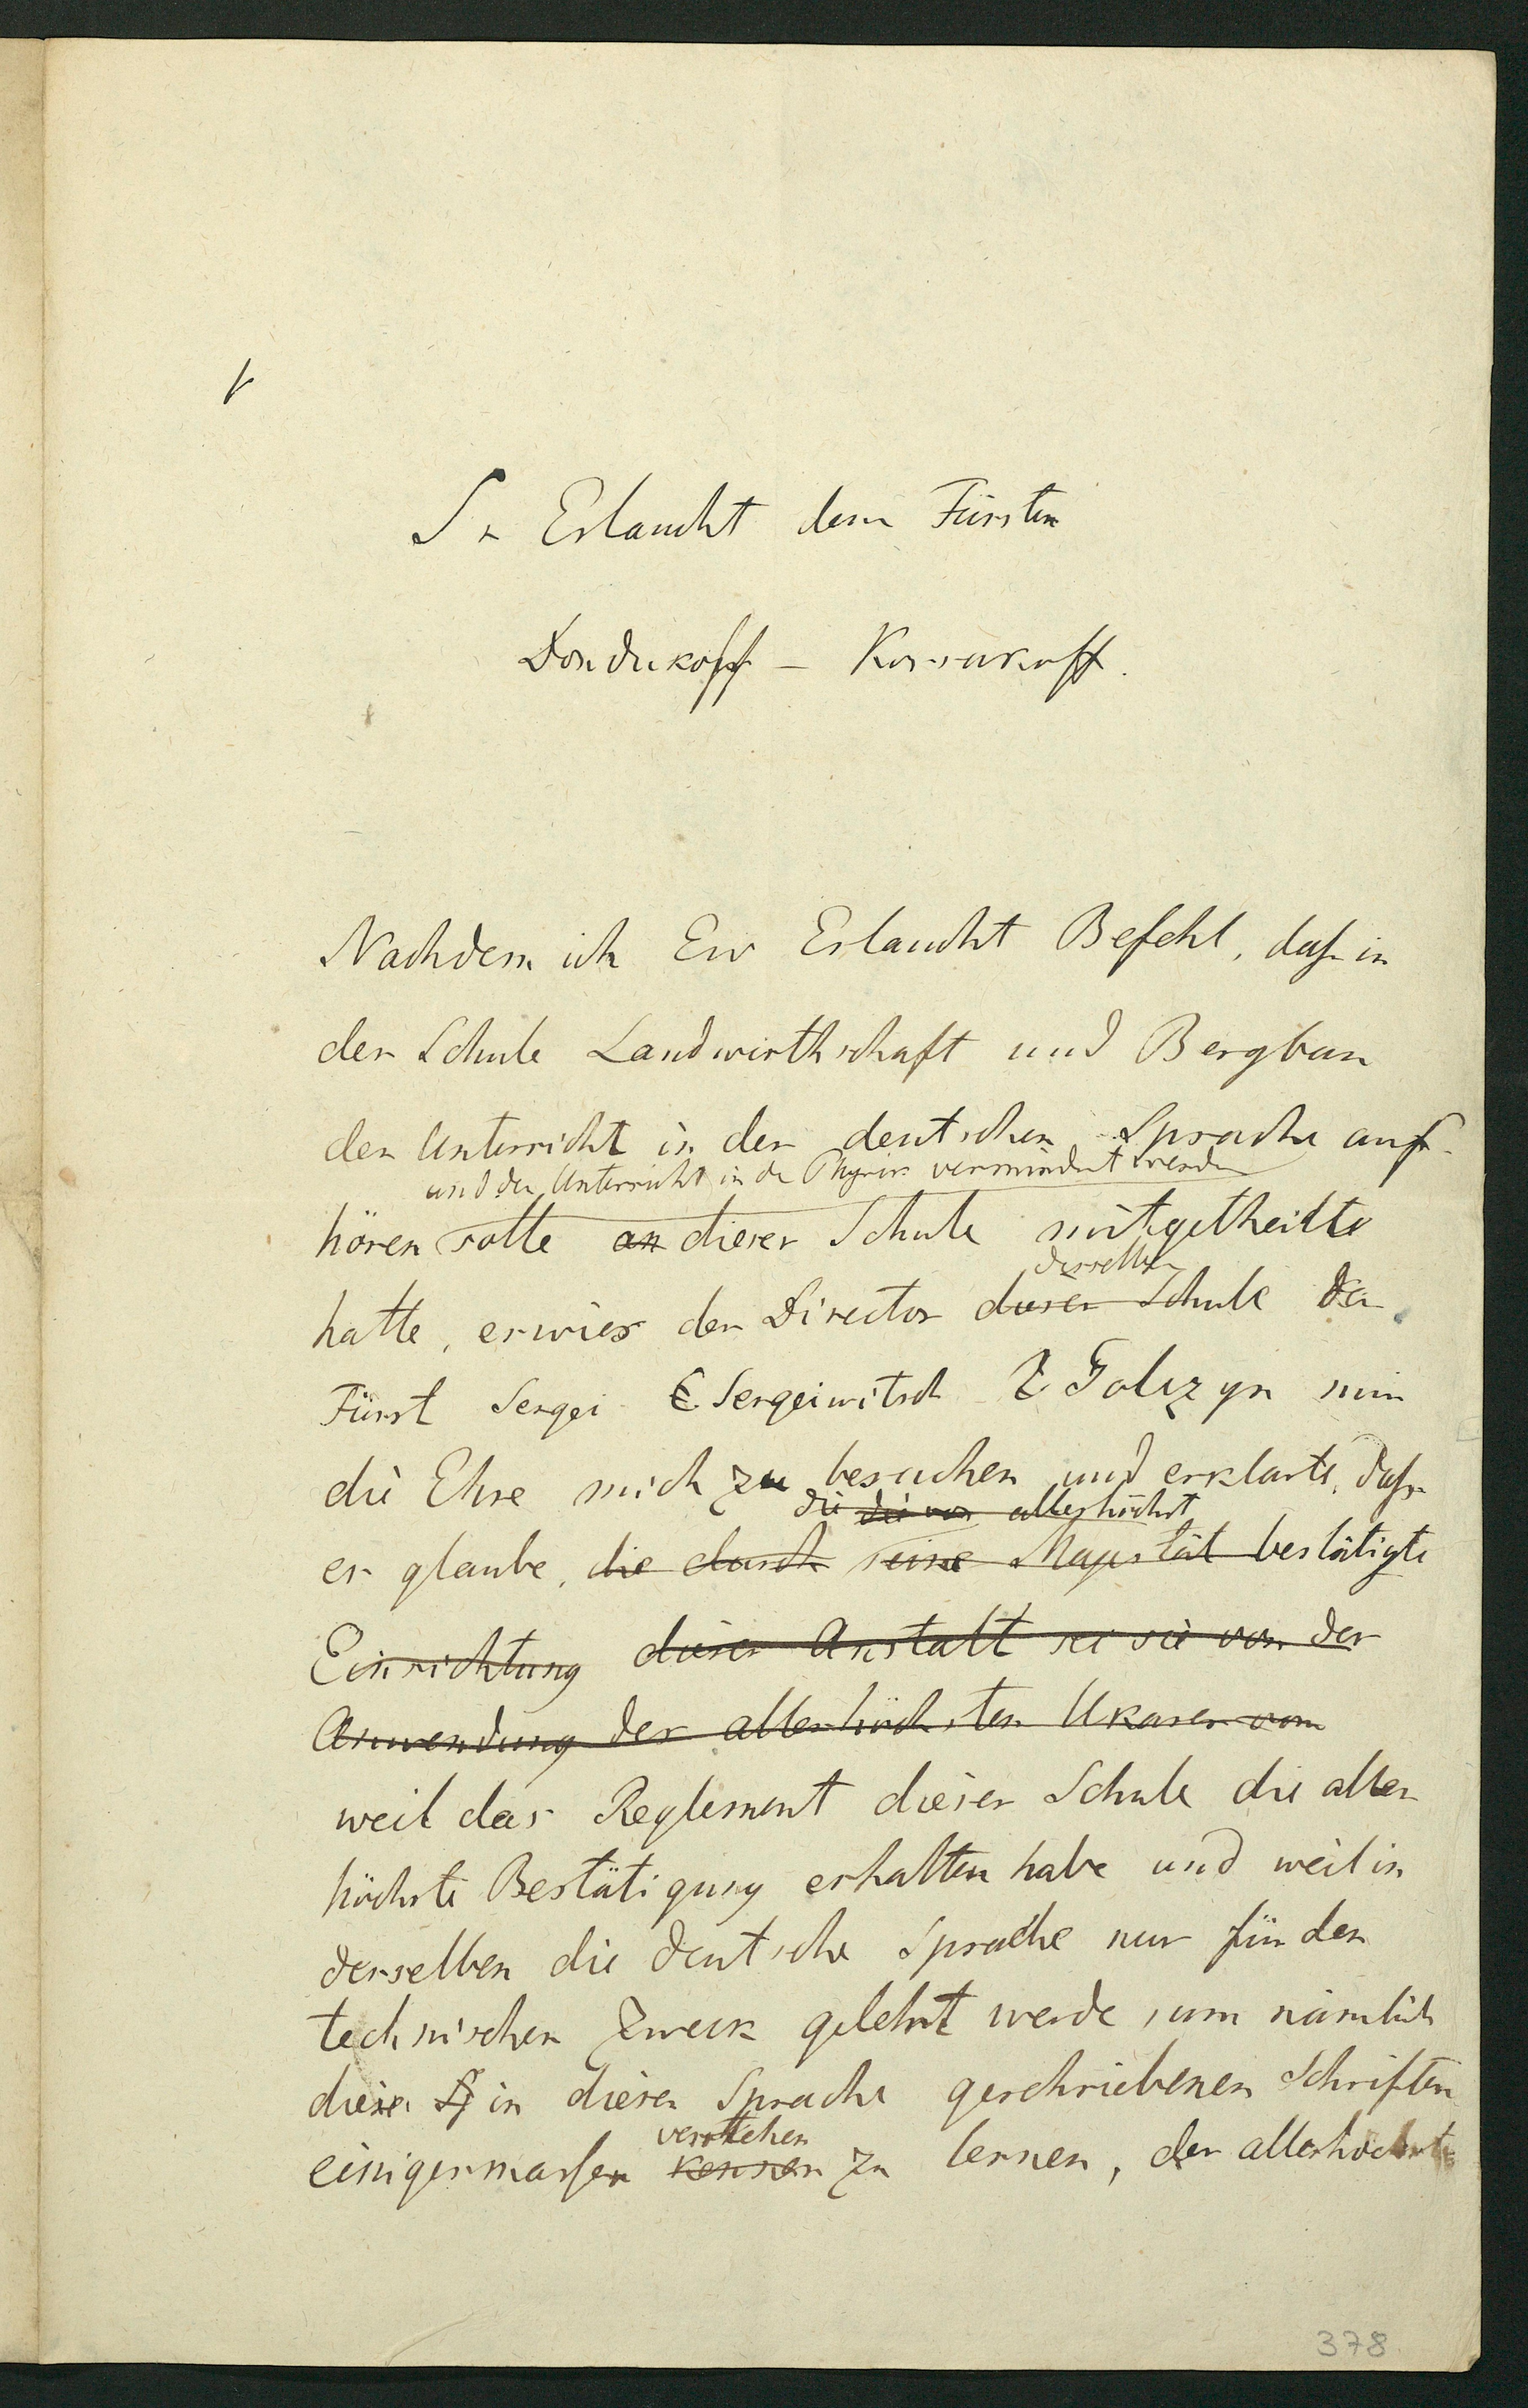 Sr Erlaucht dem Fürsten
Dondukoff - Korsakoff.
Nachdem ich Ew Erlaucht Befehl, daß in
der Schule Landwirthschaft und Bergbau
der Unterricht in der deutschen Sprache auf-
und der Unterricht in der Physik vermindert werden
hören solle an dieser Schule mitgetheilt
derselben
hatte, erwies der Director dieser Schule der
Fürst Sergei Sergeiwitsch Golizyn mir
die Ehre mich zu besuchen und erklarte, daß
die die von allerhöchst
er glaube, die durch seine Majestät bestätigte
Einrichtung dieser Anstalt sei sie von der
Anwendung des allerhöchsten Ukases vom
weil das Reglement dieser Schule die aller
höchste Bestätigung erhalten habe und weil in
derselben die deutsche Sprache nur für den
technischen Zweck gelehrt werde, um nämlich
diese in dieser Sprache geschriebenen Schriften
verstehen
einigermaßen kennen zu lernen, der allerhöchste
378